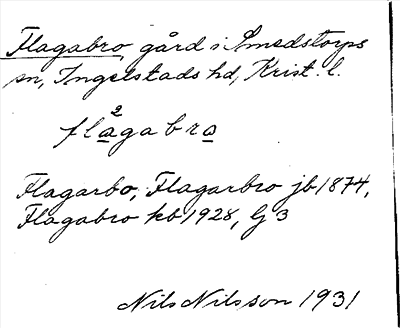 Flagabro, gård i Smedstorps
sn, Ingelstads hd, Krist. l.
2
flagabro
Flagarbo, Flagarbro jb 1874,
Flagabro kb 1928, G 3
Nils Nilsson 1931